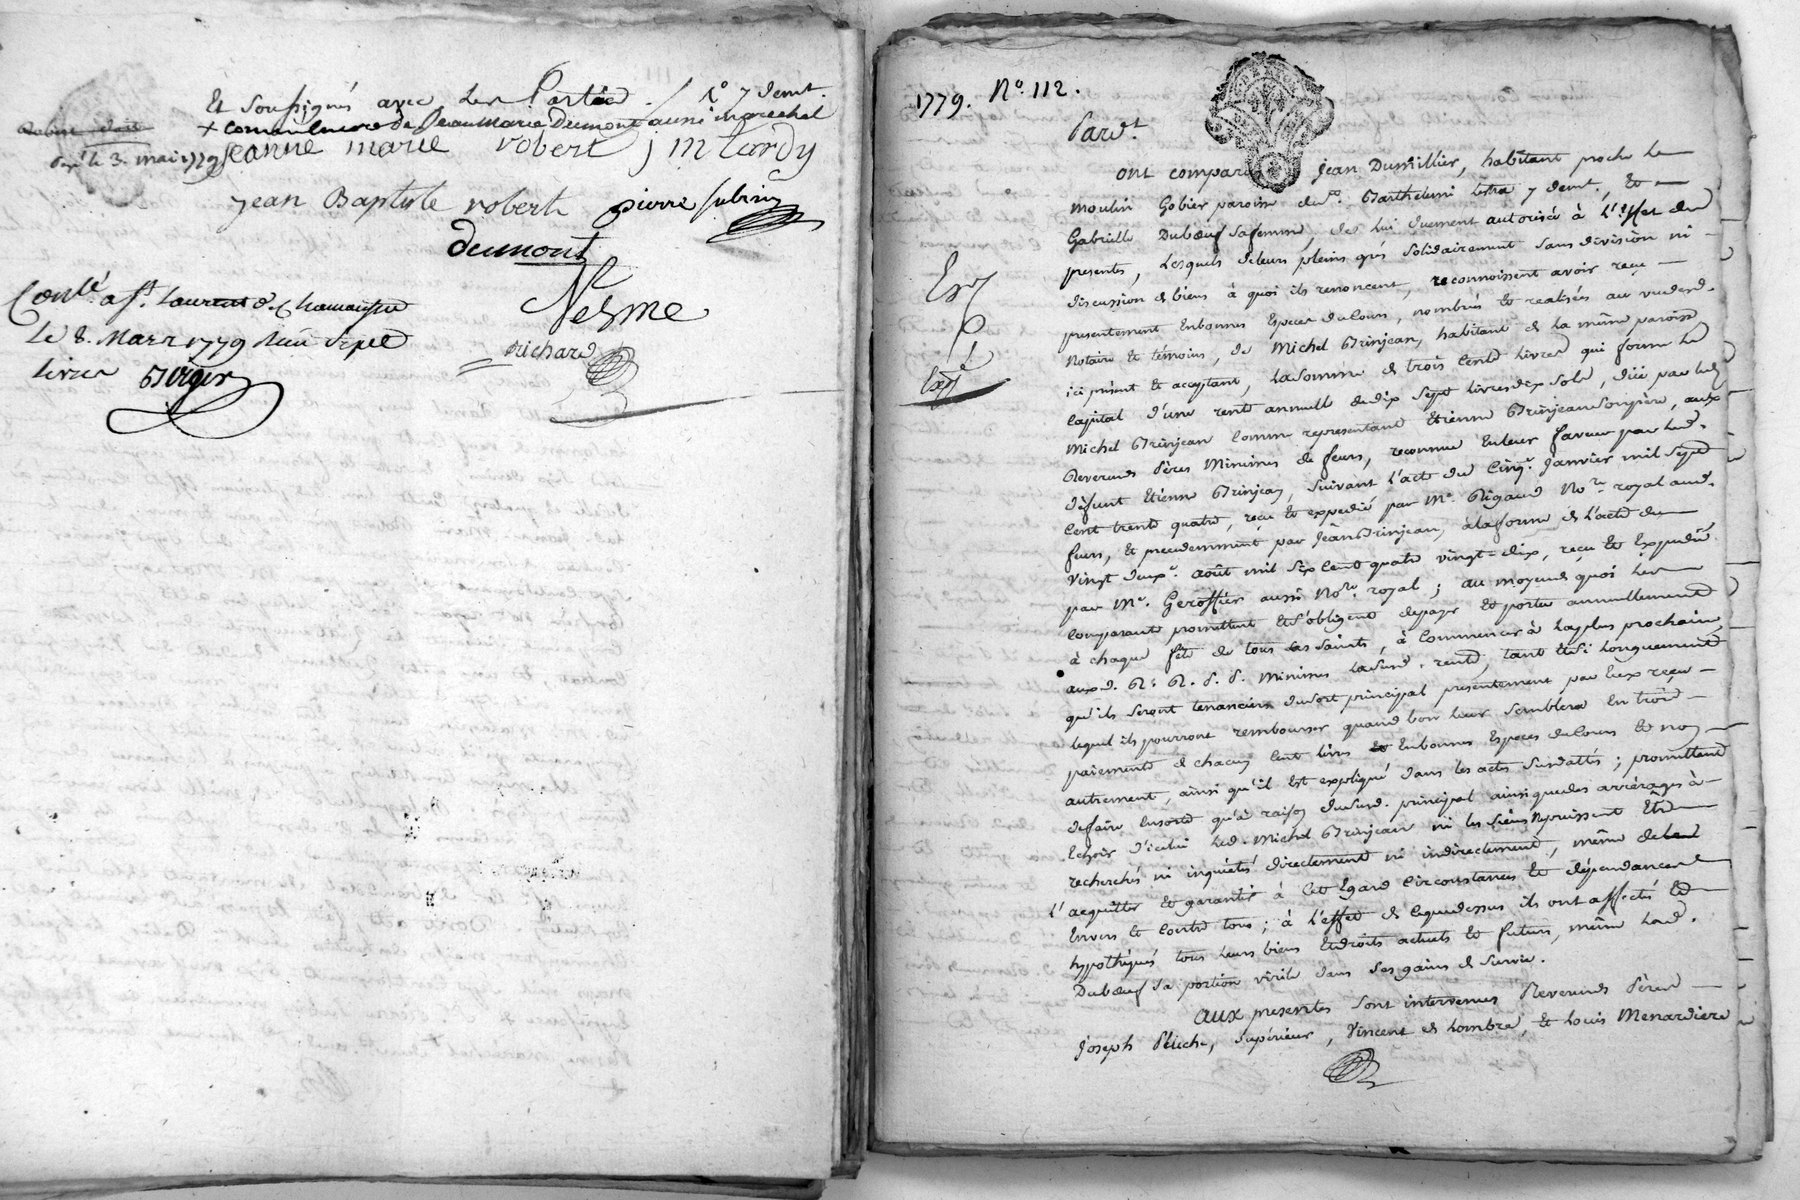 Et Soussignés avec les Parties
+ comme
aussi marechal
Exp.é le 3. mai 1779
jeanne marie robert j m tardy
jean Baptiste robert pierre subrin
dumont
Conlé. a St. Laurent d. Chamousset
le 8. Mars 1779 Reçu sept
livres Berger
Nesme
Richard
1779. No. 112.
Pard.t
ont comparu Jean Dumillier, habitant proche le
moulin Gobier paroisse de St. Barthelemi Lestra y demt., Et
Gabrielle Duboeuf sa femme, de lui duement autorisée à l'effet des
presentes, Lesquels de leurs pleins grés Solidairement sans division ni
discussion de biens à quoi ils renoncent, reconnoissent avoir reçu
presentement En bonnes Especes de Cours, nombrés Et realisées au vu desd.
Notaire Et témoins, de Michel Brinjean, habitant de la même paroisse
ici présent Et acceptant, La Somme de trois Cents Livres qui forme le
Capital d'une rente annuelle de dix Sept livres dix Sols, düe par led.
Michel Brinjean Comme representant Etienne Brinjean Son père, aux
Reverends Pères Minimes de feurs, reconnue En leur faveur par led.
défunt Etienne Brinjean, Suivant L'acte du Cinq.e Janvier mil Sept
Cent trente quatre, recu Et expedié par Me. Rigaud No.re royal aud.
feurs, Et precedemment par Jean Brinjean, a la forme de l'acte du
vingt deux.e août mil Six Cent quatre vingt=dix, reçu Et Expedié
par Me. Geroffier aussi No.re royal ; au moyen de quoi les
Comparants promettent Et s'obligent de payer Et porter annuellement
à chaque fête de tous les Saints, à Commencer à la plus prochaine,
aux d. R. R. P. P. Minimes la Susd. rente, tant Et Si longuement
qu'ils Seront tenanciers du Sort principal presentement par Eux reçu
lequel ils pourront rembourser quand bon leur Semblera En trois
paiements de chacun Cent livres Et En bonnes Especes de Cours Et non
autrement, ainsi qu'il Est expliqué dans les actes Susdattés ; promettent
de faire Ensorte qu'à raison du Susd. principal ainsi que des arrérages à
Echoir d'icelui led. Michel Brinjean ni les Siens N'puissent Etre
recherchés ni inquiétés directement ni indirectement, même de les
l'acquitter Et garantir à Cet Egard Circonstances Et dépendances
Envers Et Contre tous ; à l'effet de ce que dessus ils ont affectés Et
hypothéqués tous leurs biens Et droits actuels Et futurs, même lad.
Duboeuf Sa portion virile dans Ses gains de Survie.
aux presentes Sont intervenus Reverends Pères
Joseph Peliche, Supérieur, Vincent de Lombre, Et Louis Menardiere